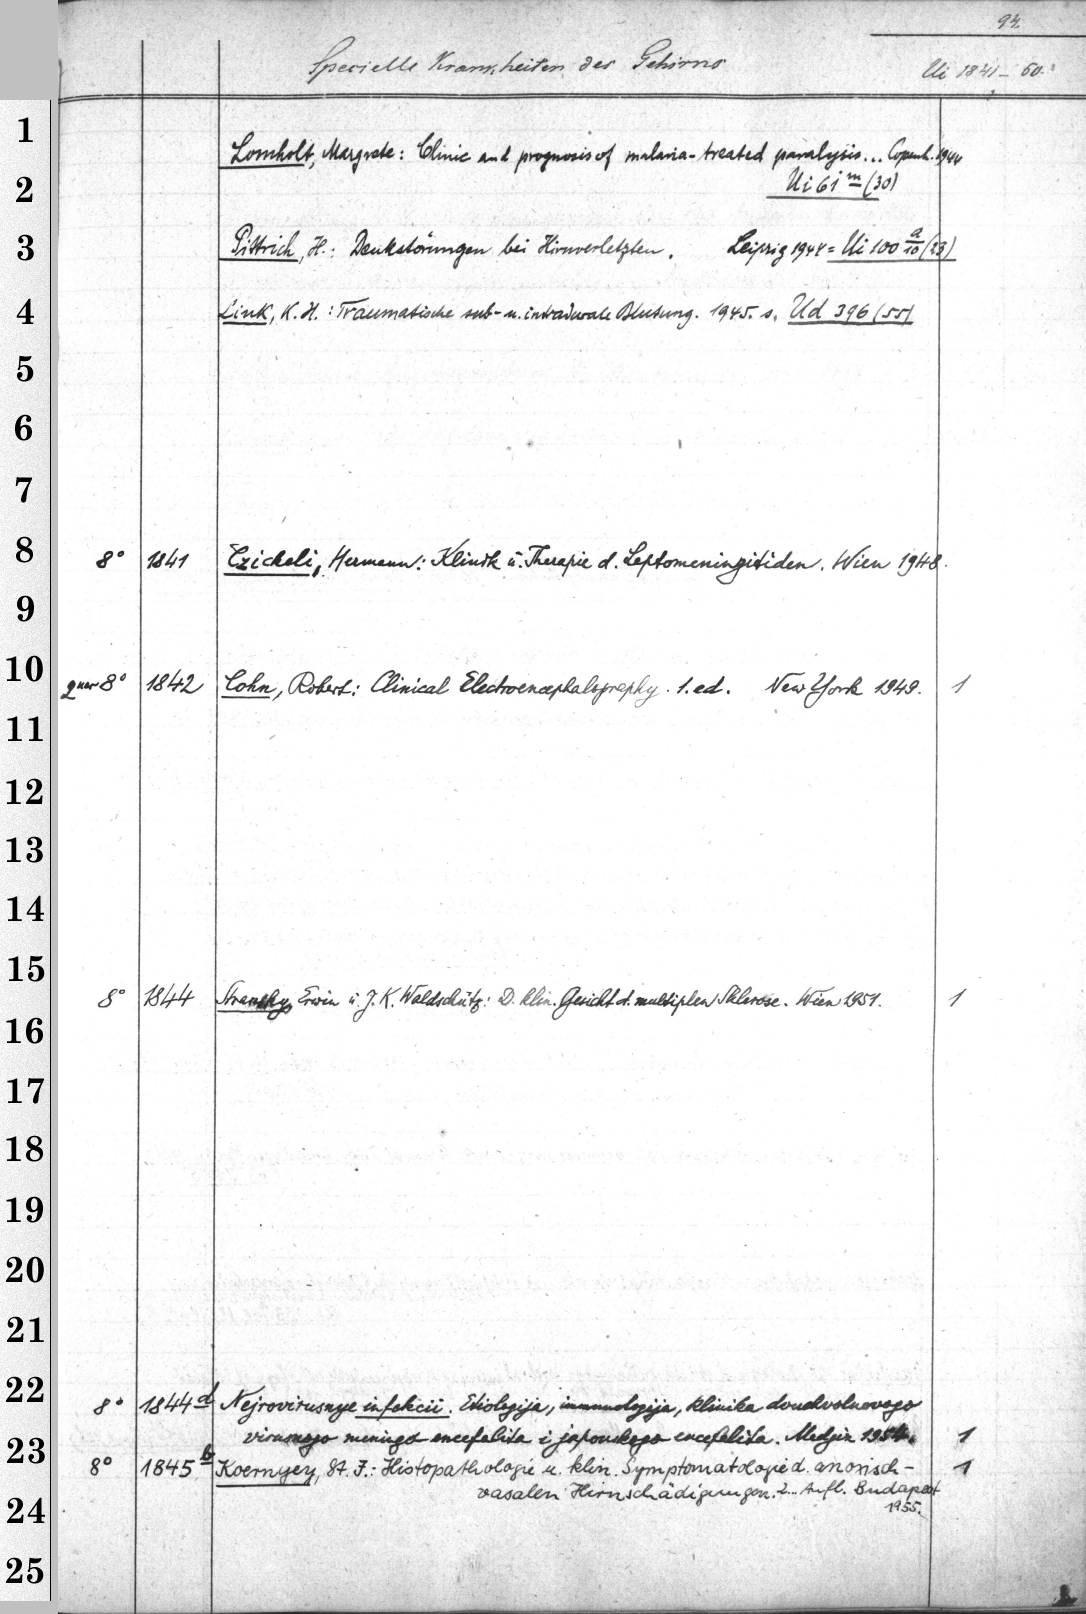 94.
Specielle Krankheiten des Gehirns Ui 1841-60.
1
Lomholt, Margrete: Clinic and prognosis of malaria-treated paralysis... Copenh. 1944
2
Ui 61 m (30)
3
Pittrich, H.: Denkstörungen bei Hirnverletzten. Leipzig 1944 = Ui 100 a/10 (23)
4
Link, K. H.: Traumatische sub- u. intradurale Blutung. 1945. s. Ud 396 (55)
5
6
7
8
8° 1841 Czickeli, Hermann: Klinik u. Therapie d. Leptomeningitiden. Wien 1948.
9
10
quer 8° 1842 Cohn, Robert: Clinical Electroencephalography. 1. ed. New York 1949. 1
11
12
13
14
15
8° 1844 Stransky, Erwin u. J. K. Waldschütz: D. klin. Gesicht d. multiplen Sklerose. Wien 1951. 1
16
17
18
19
20
21
22
8° 1844 d Nejrovirusnye infekcii. Etiologija, immunologija, klinika dvuchvolnovogo
virusnogo meningo encefalita i japonskogo encefalita. Medgiz 1954. 1
23
8° 1845 b Koernyey, St. F.: Histopathologie u. klin. Symptomatologie d. anoxisch- 1
vasalen Hirnschädigungen. 2... Aufl. Budapest
24
1955.
25